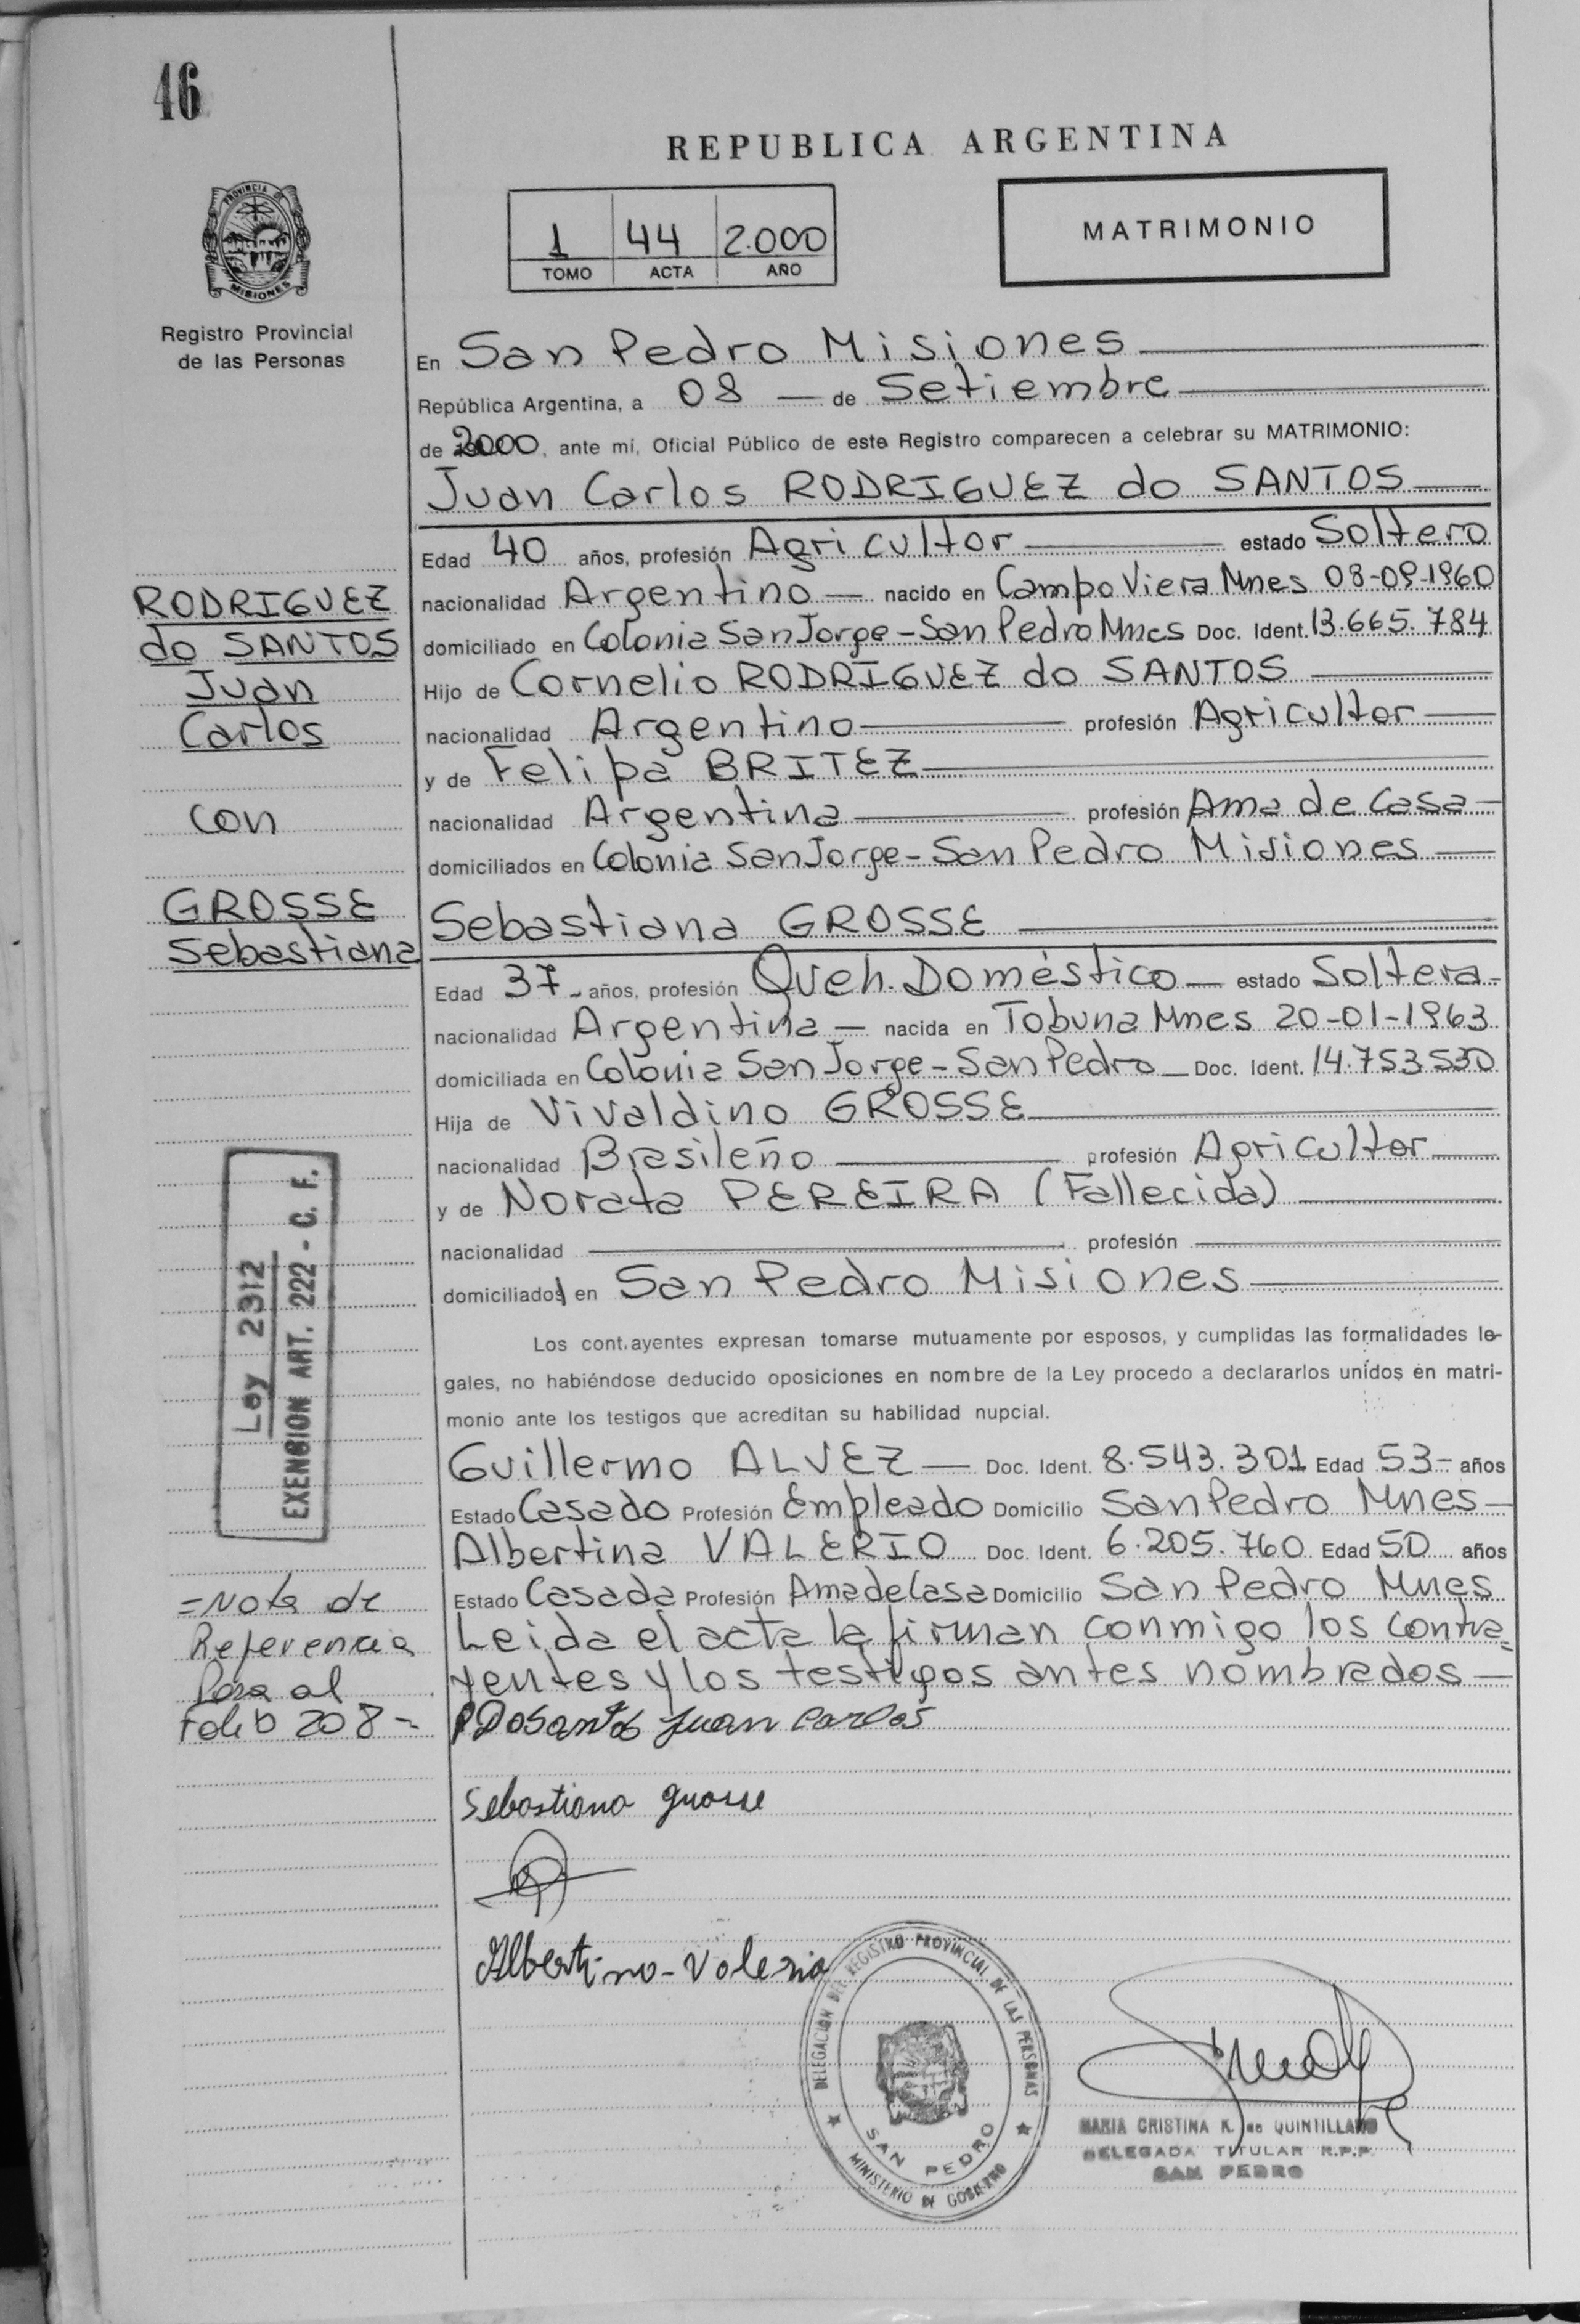 46
REPUBLICA ARGENTINA
PROVINCIA DE
MISIONES
Registro Provincial
de las Personas
1 44 2.000
TOMO ACTA AÑO
MATRIMONIO
En San Pedro Misiones
República Argentina, a 08 — de Setiembre
de 2000, ante mí, Oficial Público de este Registro comparecen a celebrar su MATRIMONIO:
Juan Carlos RODRIGUEZ do SANTOS
Edad 40 años, profesión Agricultor estado Soltero
nacionalidad Argentino — nacido en Campo Viera Mnes 08-09-1960
domiciliado en Colonia San Jorge - San Pedro Mnes Doc. Ident. 13.665.784
Hijo de Cornelio RODRIGUEZ do SANTOS
nacionalidad Argentino profesión Agricultor
y de Felipa BRITEZ
nacionalidad Argentina profesión Ama de Casa
domiciliados en Colonia San Jorge - San Pedro Misiones
RODRIGUEZ
do SANTOS
Juan
Carlos
con
GROSSE
Sebastiana
Sebastiana GROSSE
Edad 37 - años, profesión Queh. Doméstico — estado Soltera -
nacionalidad Argentina — nacida en Tobuna Mnes 20-01-1963
domiciliada en Colonia San Jorge - San Pedro — Doc. Ident. 14.753.530
Hija de Vivaldino GROSSE
nacionalidad Brasileño profesión Agricultor
y de Norata PEREIRA (Fallecida)
nacionalidad profesión
domiciliados en San Pedro Misiones
Los cont.ayentes expresan tomarse mutuamente por esposos, y cumplidas las formalidades le-
gales, no habiéndose deducido oposiciones en nombre de la Ley procedo a declararlos unidos en matri-
monio ante los testigos que acreditan su habilidad nupcial.
Ley 2312
EXENSION ART. 222 - C. F.
Guillermo ALVEZ — Doc. Ident. 8.543.301 Edad 53 - años
Estado Casado Profesión Empleado Domicilio San Pedro Mnes -
Albertina VALERIO Doc. Ident. 6.205.760 Edad 50 años
Estado Casada Profesión Ama de Casa Domicilio San Pedro Mnes
Leida el acta la firman conmigo los contra=
yentes y los testigos antes nombrados —
= Nota de
Referencia
Para al
Folio 208 =
RDoSantos Juan Carlos
Sebastiana grosse
Albertina - Valerio
DELEGACION DEL REGISTRO PROVINCIAL DE LAS PERSONAS
SAN PEDRO
MINISTERIO DE GOBIERNO
MARIA CRISTINA K. de QUINTILLANO
DELEGADA TITULAR R.P.P.
SAN PEDRO